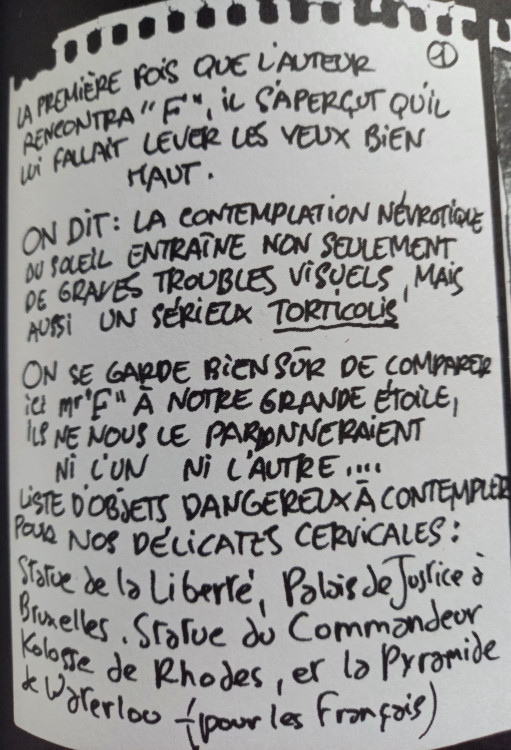 1
LA PREMIÈRE FOIS QUE L'AUTEUR
RENCONTRA "F", IL S'APERÇUT QU'IL
LUI FALLAIT LEVER LES YEUX BIEN
HAUT.
ON DIT : LA CONTEMPLATION NÉVROTIQUE
DU SOLEIL ENTRAÎNE NON SEULEMENT
DE GRAVES TROUBLES VISUELS, MAIS
AUSSI UN SÉRIEUX TORTICOLIS
ON SE GARDE BIEN SÛR DE COMPARER
ici mr "F" À NOTRE GRANDE ÉTOILE,
ILS NE NOUS LE PARDONNERAIENT
NI L'UN NI L'AUTRE....
LISTE D'OBJETS DANGEREUX À CONTEMPLER
POUR NOS DÉLICATES CERVICALES :
Statue de la Liberté, Palais de Justice à
Bruxelles. Statue du Commandeur
Kolosse de Rhodes, et la Pyramide
de Waterloo - (pour les Français)